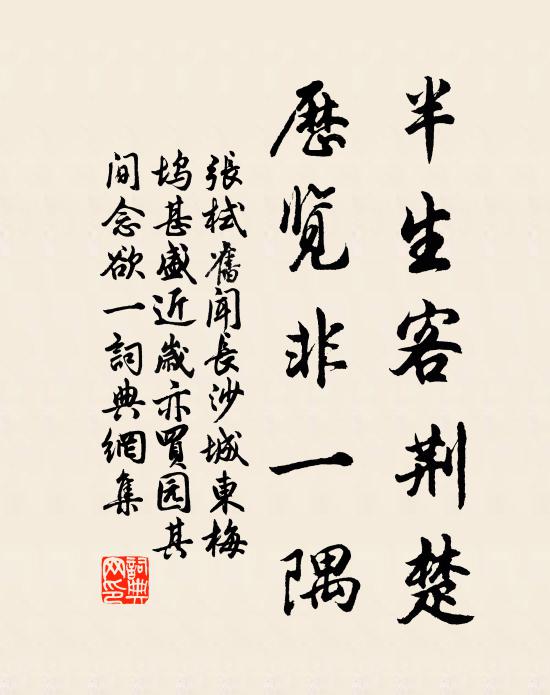 半生客荆楚
歷覽非一隅
張栻舊聞長沙城東梅
塢甚盛近歲亦買园其
间念欲一詞典網集
詞典网印